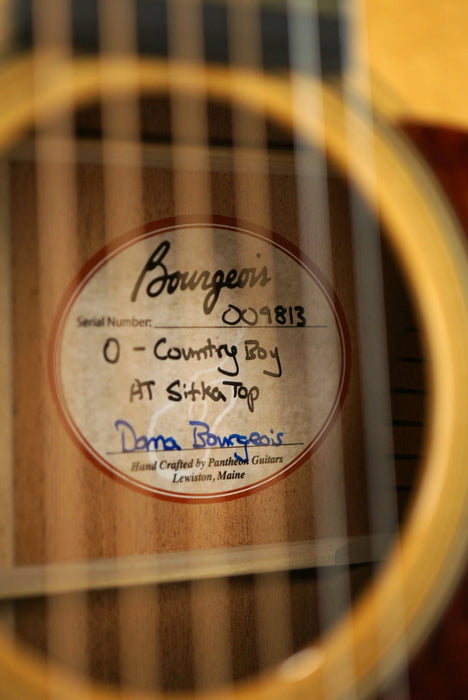 Bourgeois
Serial Number: 009813
O - Country Boy
AT Sitka Top
Dana Bourgeois
Hand Crafted by Pantheon Guitars
Lewiston, Maine